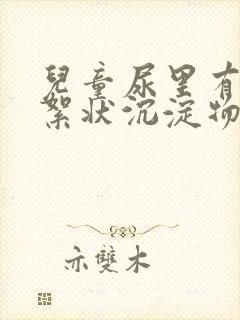 兒童尿里有
絮狀沉淀物
示雙木